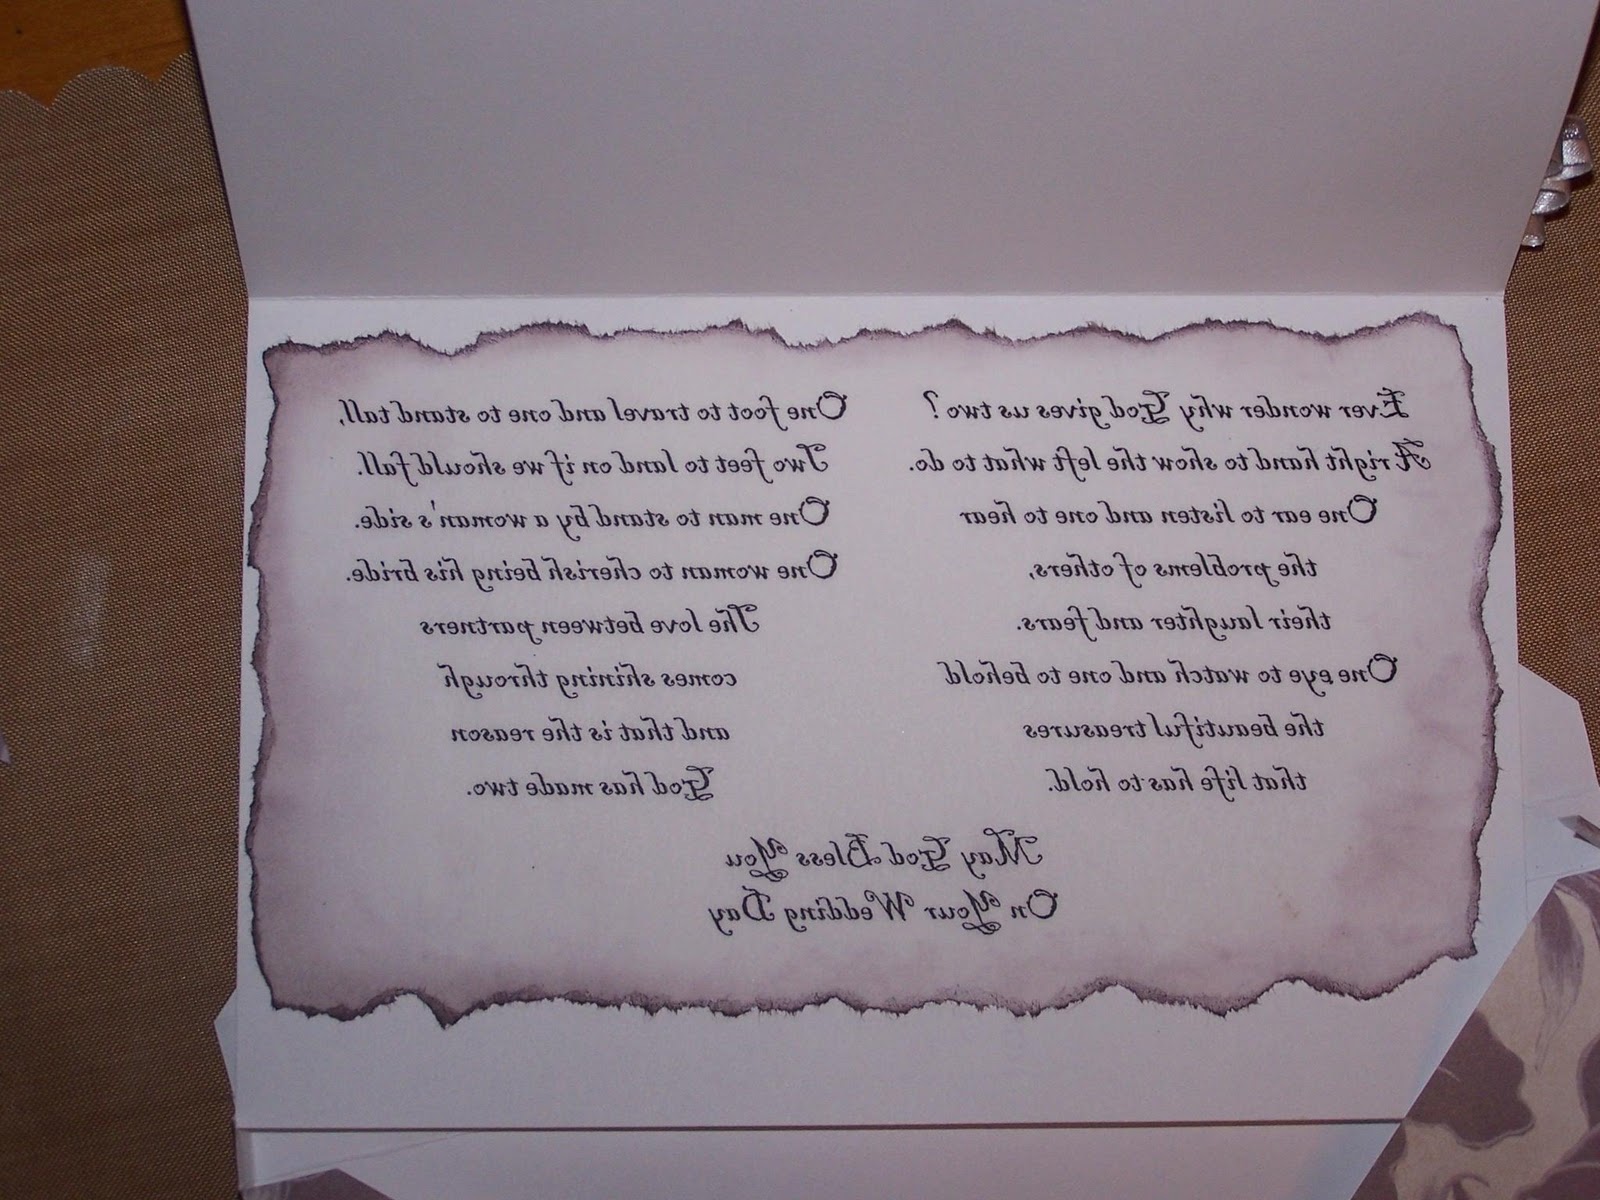 Ever wonder why God gives us two?
A right hand to show the left what to do.
One ear to listen and one to hear
the problems of others,
their laughter and fears.
One eye to watch and one to behold
the beautiful treasures
that life has to hold.
One foot to travel and one to stand tall,
Two feet to land on if we should fall.
One man to stand by a woman's side.
One woman to cherish being his bride.
The love between partners
comes shining through
and that is the reason
God has made two.
May God Bless You
On Your Wedding Day